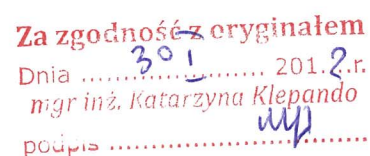 Za zgodność z oryginałem
Dnia ....30 I.... 2012.r.
mgr inż. Katarzyna Klepando
podpis ....................